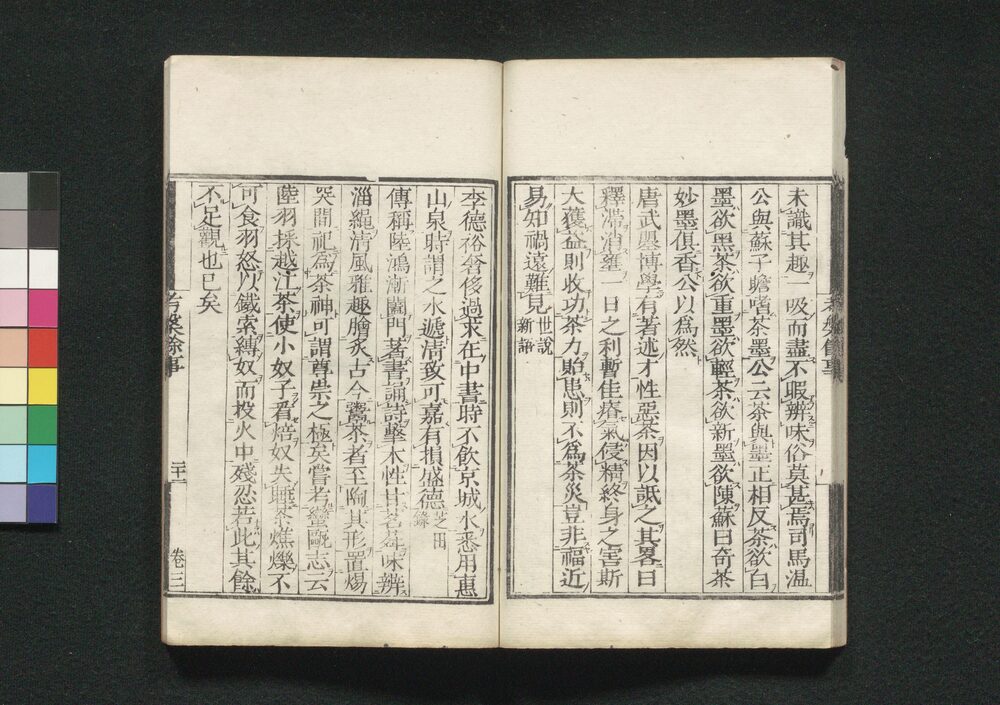 未識其趣一吸而盡不暇辨味俗莫甚焉司馬温
公與蘇子瞻嗜茶墨公云茶與墨正相反茶欲白
墨欲黑茶欲重墨欲輕茶欲新墨欲陳蘇曰奇茶
妙墨俱香公以爲然
唐武曌博學有著述才性惡茶因以詆之其畧曰
釋滯消壅一日之利暫佳瘠氣侵精終身之害斯
大獲益則收功茶力貽患則不爲茶災豈非福近
易知禍遠難見世説新語
李德裕奢侈過求在中書時不飲京城水悉用惠
山泉時謂之水遞清致可嘉有損盛德芝田錄
傳稱陸鴻漸闔門著書誦詩擊木性甘茗荈味辨
淄繩清風雅趣膾炙古今鬻茶者至陶其形置煬
突間祀爲茶神可謂尊崇之極矣嘗考蠻甌志云
陸羽採越江茶使小奴子看焙奴失睡茶燋爍不
可食羽怒以鐵索縛奴而投火中殘忍若此其餘
不足觀也已矣
考槃餘事 二十一 卷三